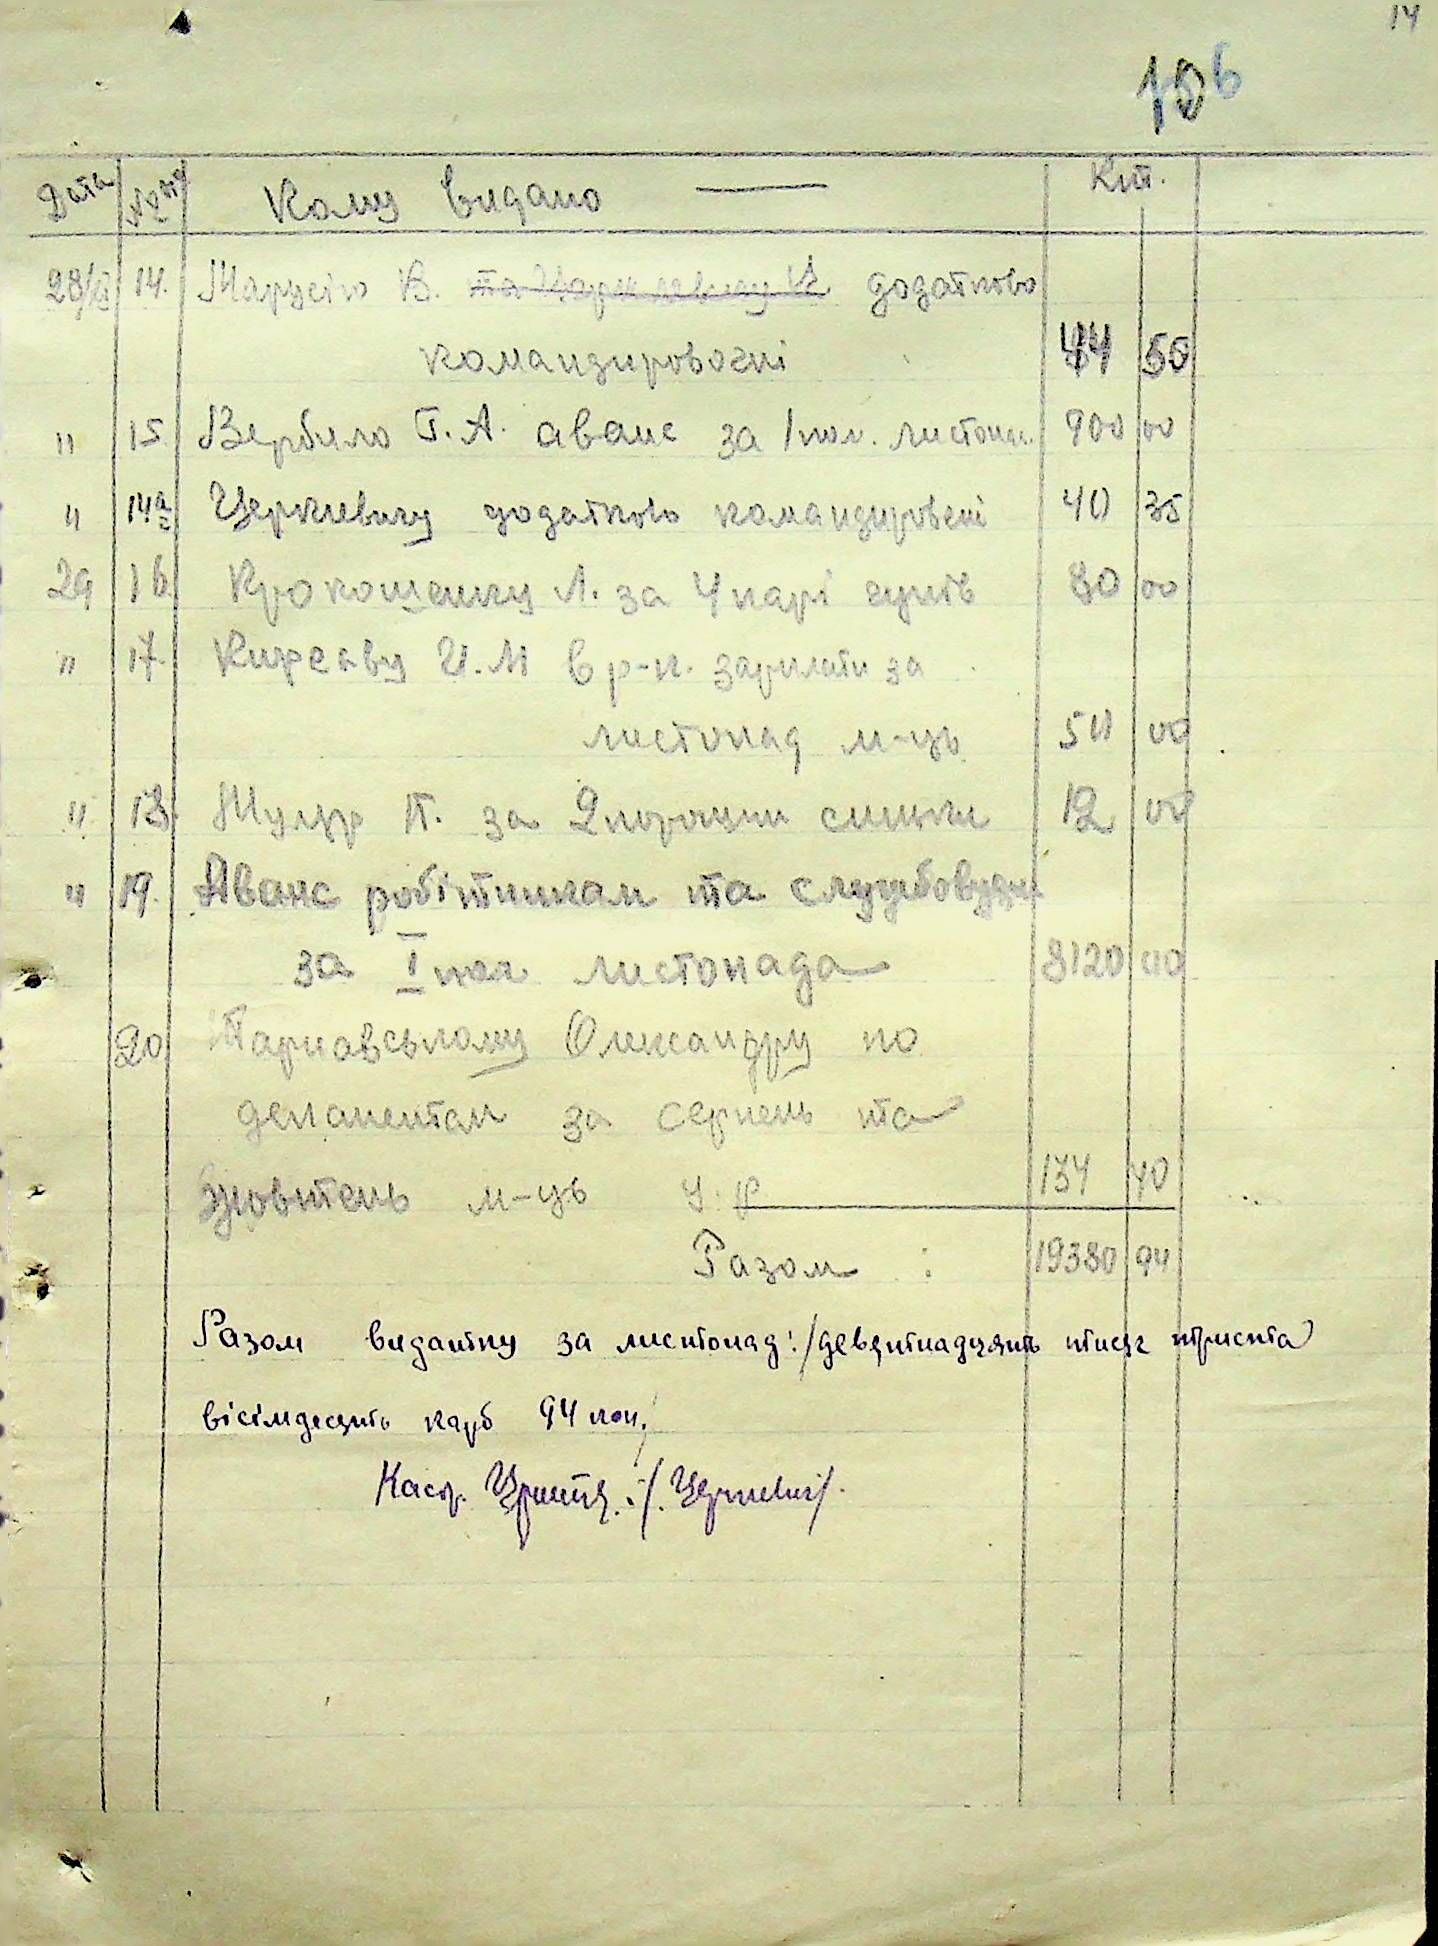 14
106
Дата № Кому видано — Кт.
28/XI 14. Марусію В. ~~та Церкевичу В~~ додатково
командировочні 44 55
" 15. Вербило Г. А. аванс за I пол. листопад. 900 00
" 14а Церкевичу додатково командировочні 40 35
29 16. Крокошенку Л. за 4 карі супів 80 00
" 17. Кирсаву И. М в р-к. зарплати за
листопад м-ць 50 00
" 18. Муляр П. за 2 порошки синьки 12 00
" 19. Аванс робітникам та службовцям
за I пол листопада 8120 00
20 Тарнавському Олександру по
депонентам за серпень та
жовтень м-ць ц.р 134 40
Разом : 19380 94
Разом видатку за листопад: /девятнадцять тисяч триста
вісімдесять карб 94 коп./
Касір. /Церкевич/.